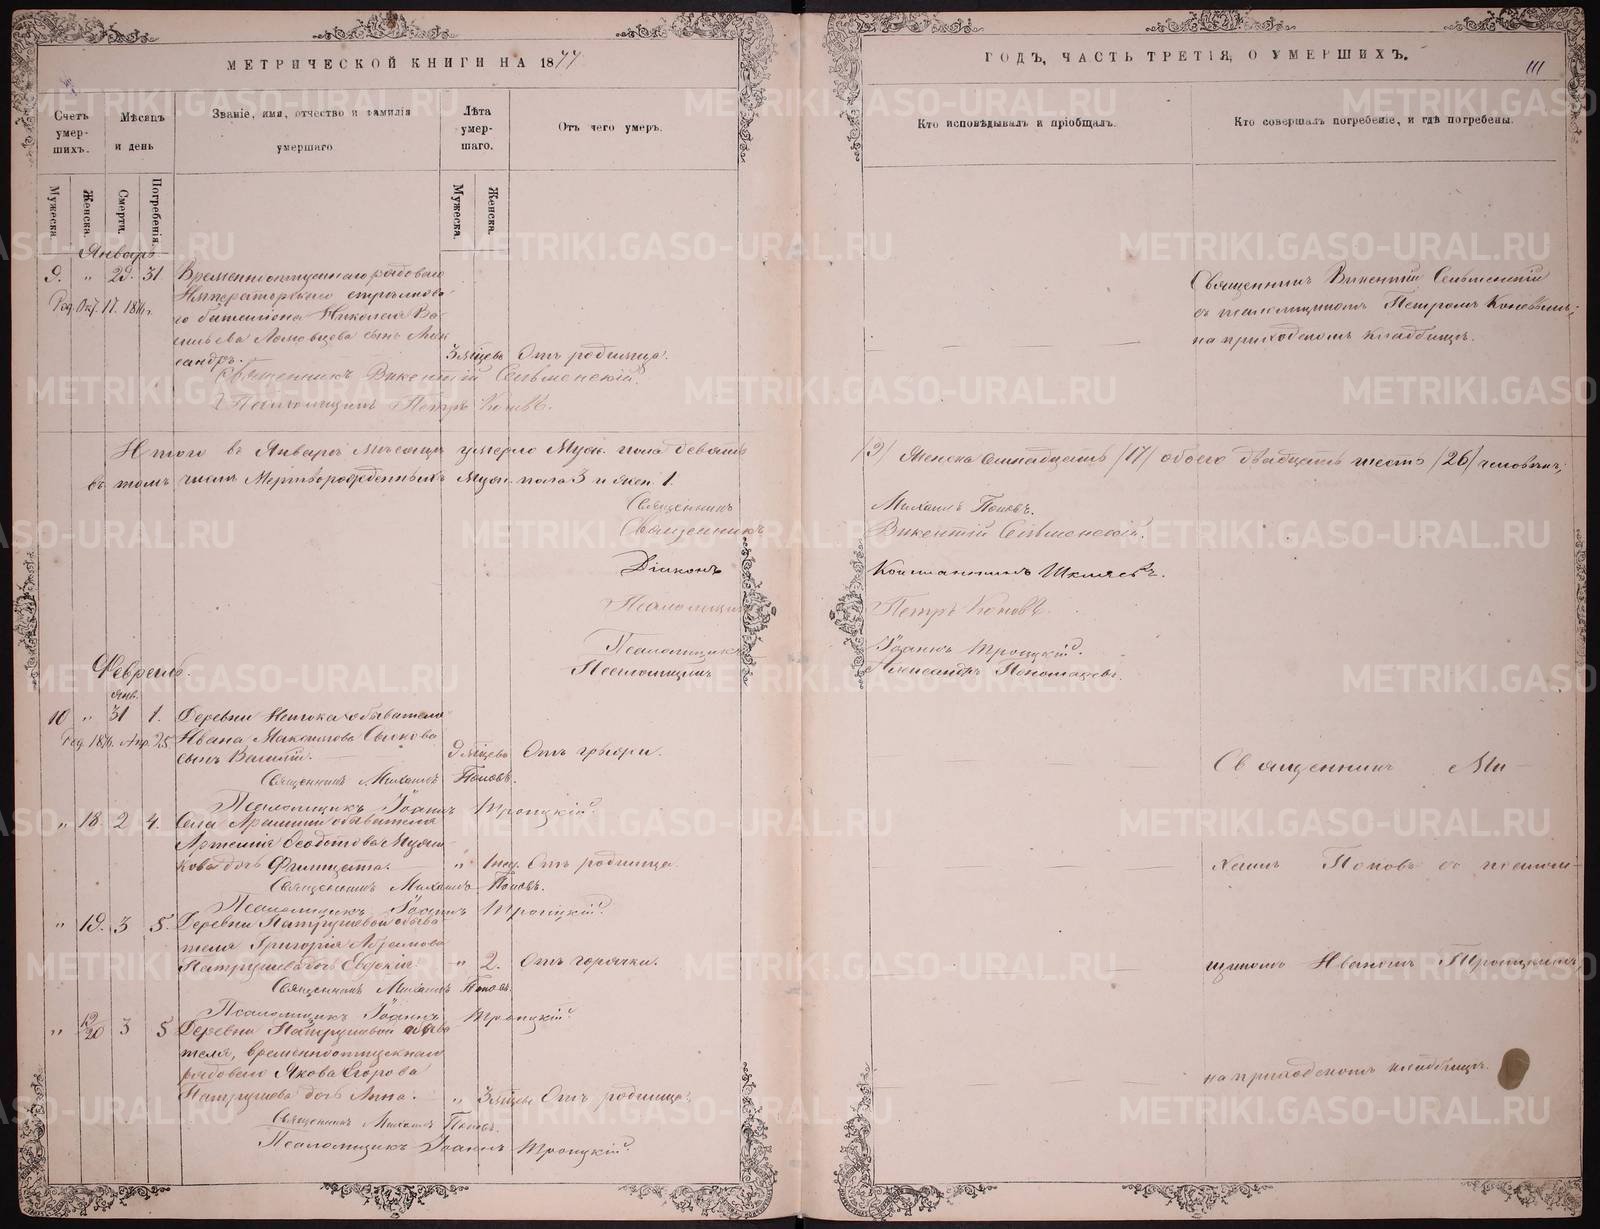 МЕТРИЧЕСКОЙ КНИГИ НА 1877
ГОДЪ, ЧАСТЬ ТРЕТІЯ, О УМЕРШИХЪ.
111
Счетъ умер- шихъ.
Мѣсяцъ и день
Званіе, имя, отчество и фамилія умершаго
Лѣта умер- шаго.
Отъ чего умеръ.
Кто исповѣдывалъ и пріобщалъ.
Кто совершалъ погребеніе, и гдѣ погребены.
Мужеска
Женска.
Смерти.
Погребенія.
Мужеска.
Женска.
Январь
9. " 29. 31 Временноотпускнаго рядоваго
Императорскаго стрѣлкова-
Род. Окт. 17. 1876 г.
го баталіона Николая Ва-
сильева сынъ Алек-
сандръ. 3 мѣсяцевъ Отъ родимца.
Священникъ Викентій Сельменскій
Псаломщикъ Петръ Коновъ.
Священникъ Викентій Сельменскій
съ псаломщикомъ Петромъ Коновымъ;
на приходскомъ кладбищѣ.
Итого въ Январѣ мѣсяцѣ умерло Муж. пола девять
/9/ Женска семнадцать /17/ обоего двадцать шесть /26/ человѣкъ;
въ томъ числѣ Мертворожденныхъ Муж. пола 3 и жен. 1.
Священникъ Михаилъ Поповъ.
Священникъ Викентій Сельменскій.
Діаконъ Константинъ Шкляевъ.
Псаломщикъ Петръ Коновъ.
Псаломщикъ Іоаннъ Троицкій.
Псаломщикъ Александръ Пономаревъ.
Февраль.
Янв.
10 " 31 1. Деревни Истока обывателя
Род. 1876. Апр. 25. Ивана Максимова
сынъ Василій. 9 мѣсяцевъ Отъ
Священникъ Михаилъ Поповъ.
Псаломщикъ Іоаннъ Троицкій
Священникъ Ми-
" 18. 2 4. Села Арамили обывателя
Артемія Ѳеодотова
дочь " 1 нед. Отъ родимца.
Священникъ Михаилъ Поповъ.
Псаломщикъ Іоаннъ Троицкій
хаилъ Поповъ съ псалом-
" 19. 3 5. Деревни Патрушевой обыва-
теля Григорія Абрамова
Патрушева дочь Евдокія. " 2. Отъ горячки.
Священникъ Михаилъ Поповъ.
Псаломщикъ Іоаннъ Троицкій
щикомъ Иваномъ Троицкимъ,
" 20 3 5 Деревни Патрушевой обыва-
теля, временноотпускнаго
рядоваго Якова Егорова
Патрушева дочь Анна. " 3 мѣсяцы Отъ родимца.
Священникъ Михаилъ Поповъ.
Псаломщикъ Іоаннъ Троицкій
на приходскомъ кладбищѣ.
METRIKI.GASO-URAL.RU